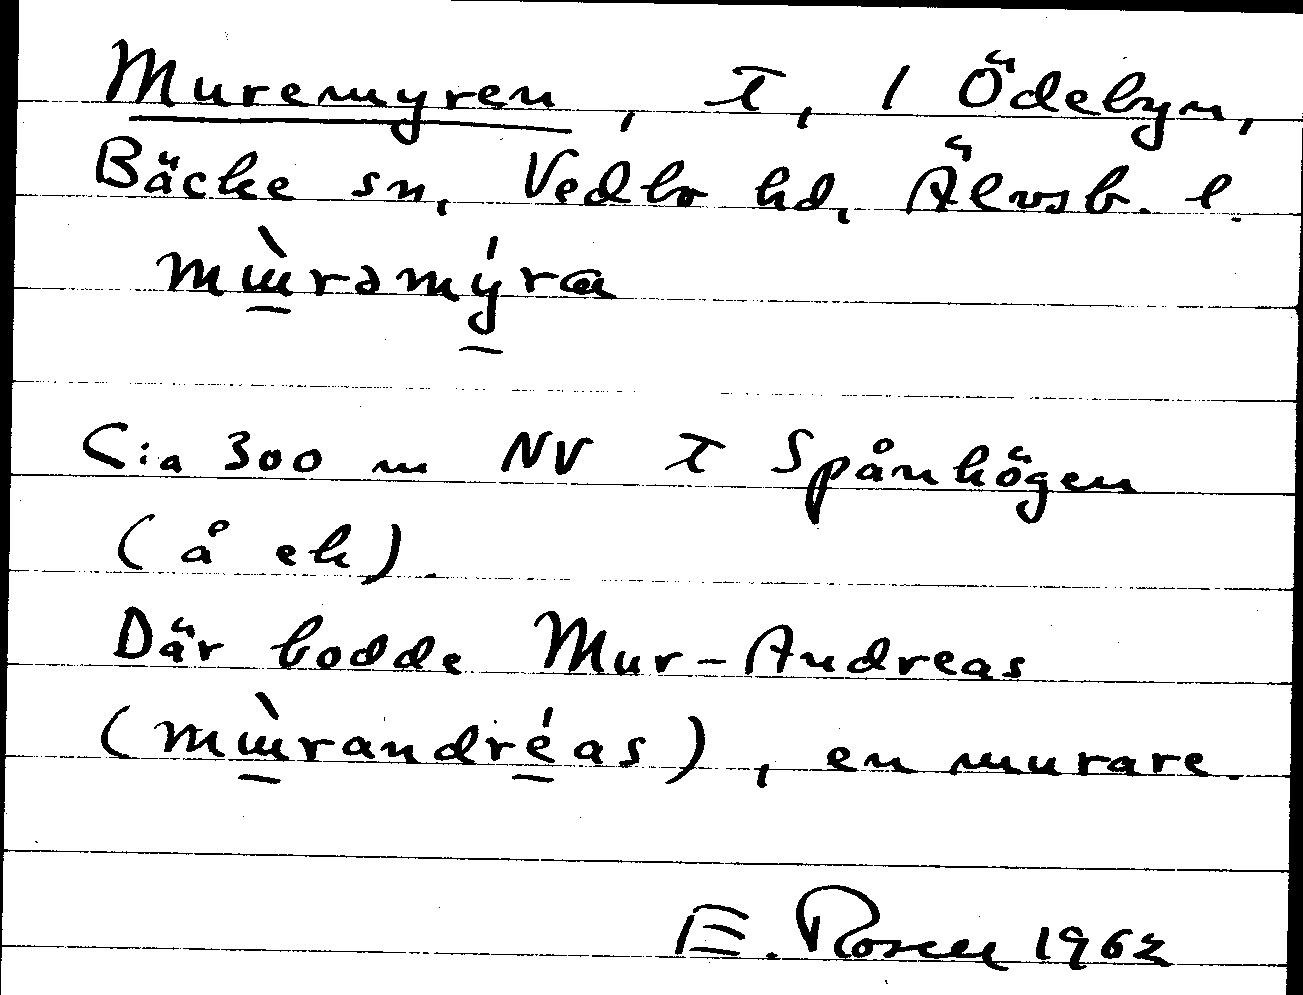 Muremyren, T, 1 Ödebyn,
Bäcke sn, Vedbo hd, Älvsb. l.
mɯ̀rəmýra
C:a 300 m NV T Spånhögen
(å ek).
Där bodde Mur-Andreas
(mɯ̀randréas), en murare.
E. Rosen 1962